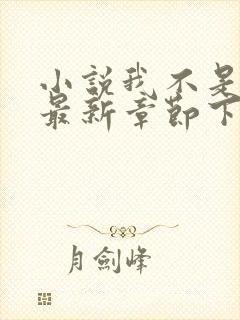 小説我不是
最新章節下
月劍峰